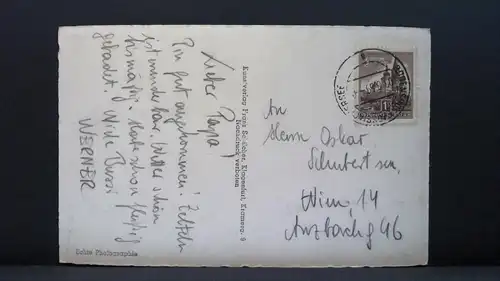 Lieber Papa!
Bin gut angekommen! Zelteln
ist wunderbar. Wetter schön
bis mäßig. Habe schon fleißig
gebadet. Viele Bussi
WERNER
Echte Photographie
Kunstverlag Franz Schilcher, Klagenfurt, Enzenbg. 9
Nachdruck verboten
An
Herrn Oskar
Schubert sen.
Wien 14
Anzbachg 46